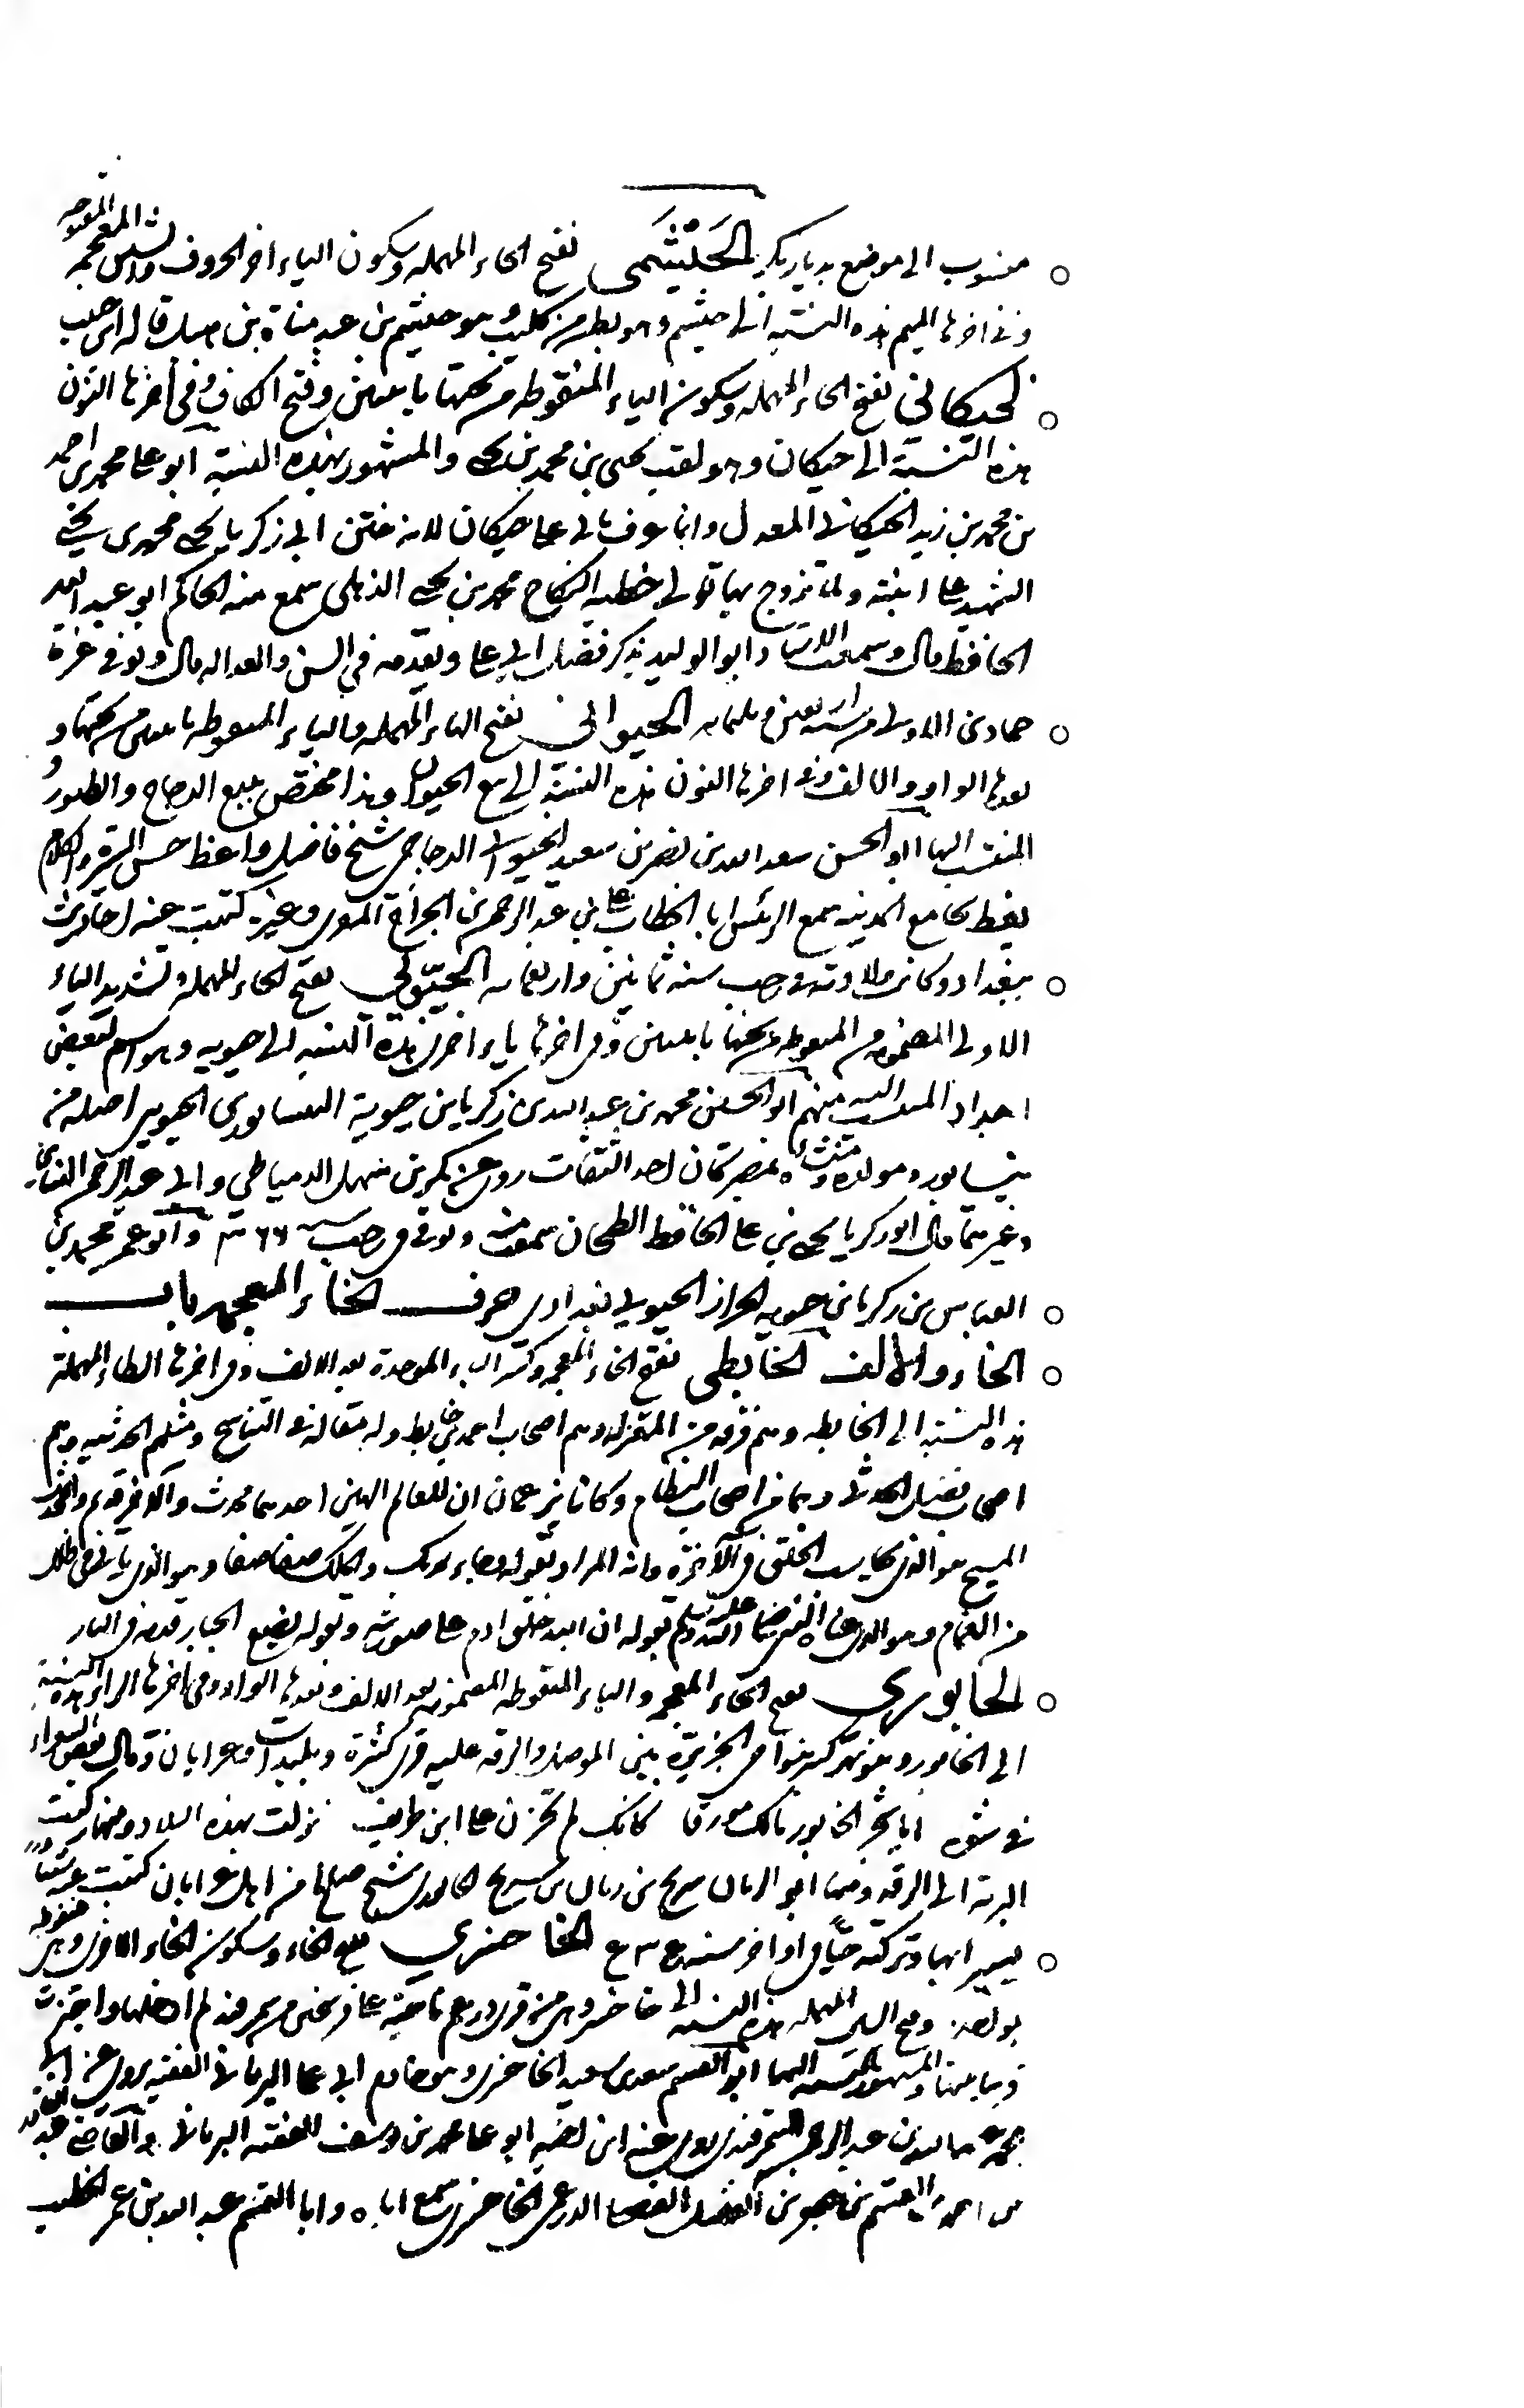 منسوب الى موضع بديار بكر الحَيْثَمى بفتح الحاء المهمله وسكون الياء اخر الحروف والثا المعجمه
وفي اخرها الميم هذه النسبة الى حيثم وهو بطن من كلب وهو حيثم بن عبد مناة بن هبل قاله ابن حبيب
الحيكاني بفتح الحاء المهمله وسكون الياء المنقوطه من تحتها باثنتين وفتح الكاف وفي آخرها النون
هذه النسبة الى حيكان وهو لقب يحيى بن محمد بن يحيى والمشهور بهذه النسبة ابو علي محمد بن احمد
بن محمد بن زيد الحيكاني المعدل وانما عرف بابي علي حيكان لانه ختن ابي زكريا يحيى بن محمد بن يحيى
الشهيد على ابنته ولما تزوج بها تولى خطبة النكاح محمد بن يحيى الذهلي سمع منه الحاكم ابو عبد الله
الحافظ قال وسمعت الاستاد ابو الوليد يذكر فضل ابي علي وتقدمه في السن والعداله قال وتوفى غرة
جمادى الاولى من سنه اربعين وثلثمايه الحيواني بفتح الحاء المهمله والياء المنقوطه باثنتين من تحتها و
بعدها الواو والالف وفي اخرها النون هذه النسبة الى بيع الحيوان وهذا مختص ببيع الدجاج والطيور و
المنتسب اليها ابو الحسن سعد الله بن نصر بن سعيد الحيواني الدجاجي شيخ فاضل واعظ حسن السيرة والكلام
يعظ بجامع المدينه سمع الرئيس ابا الخطاب علي بن عبد الرحمن بن الجراح المقري وغيره كتبت عنه احاديث
ببغداد وكانت ولادته في رجب سنه ثمانين واربعمايه الحَيّوبي بفتح الحاء المهمله وتشديد الياء
الاولى المضمومه من المنقوطه من تحتها باثنتين وفي اخرها ياء اخرى هذه النسبه الى حيويه وهو اسم لبعض
اجداد المنتسب اليه منهم ابو الحسن محمد بن عبد الله بن زكريا بن حيوية النيسابوري الحيويي اصله من
نيسابور ومولده ومنشاه بمصر كان احد الثقات روى عن بكر بن سهل الدمياطي وابي عبد الرحمن النسايي
وغيرهما قال ابو زكريا يحيى بن علي الحافظ الطحان سمعت منه وتوفى في رجب سنه ٣٦٦ وابو عمر محمد بن
العباس بن زكريا بن حيويه الخزاز الحيويي بغدادي حرف الخاء المعجمه باب
الخاء والالف الخابطى بفتح الخاء المعجمه وكسر الباء الموحدة بعد الالف وفي اخرها الطاء المهملة
هذه النسبة الى الخابطه وهم فرقه من المعتزله وهم اصحاب احمد بن خابط وله مقاله في التناسخ ومثلهم الحدثيه وهم
اصحاب فضل الحدثي وهما من اصحاب النظام وكانا يزعمان ان للعالم الهين احدهما محدث والآخر قديم والمحدث
المسيح هو الذي يحاسب الخلق في الآخرة وانه المراد بقوله وجاء ربك والملك صفا صفا وهو الذي ياتي في ظلل
من الغمام وهو الذي عناه النبي صلى الله عليه وسلم بقوله ان الله خلق ادم على صورته وبقوله يضع الجبار قدمه في النار
الخابوري بفتح الخاء المعجمه والباء المنقوطه المضمومه بعد الالف وبعدها الواو وفي اخرها الراء هذه النسبة
الى الخابور وهو نهر كبير بنواحي الجزيرة بين الموصل والرقه عليه قرى كثيرة وبليدات معرابان وقال بعض الشعراء
في شعره ايا شجر الخابور مالك مورقا كانك لم تحزن على ابن طريف نزلت بهذه البلاد ومنها ركبت
البرية الى الرقه ومنها ابو الريان سريح بن ريان بن سريح الخابوري شيخ صالح من اهل عرابان كتبت عنه شيئا
يسيرا بها وتركته حيًا في اواخر سنه ع ٣ ع الخاخسري بفتح الخاء وسكون الخاء الاخرى وهي منقوطه
بواحده وفتح السين المهمله هذه النسبة الى خاخسر وهي من قرى درغم ناحية على فرسخين من سمرقند لم ادخلها واجتزت
قريبا منها والمشهور بالنسبه اليها ابو القسم سعد بن سعيد الخاخسري وهو خادم ابي علي اليوناني الفقيه يروي عن ابي
محمد عبد الله بن عبد الرحمن السمرقندي يروي عنه ابن اخيه ابو علي محمد بن يوسف الفقيه اليوناني والقاضي عبد الخالق
بن احمد بن القسم بن جبير بن الفضل الفضلي الدرغمي الخاخسري سمع اباه وابا القسم عبد الله بن عمر الخطيب